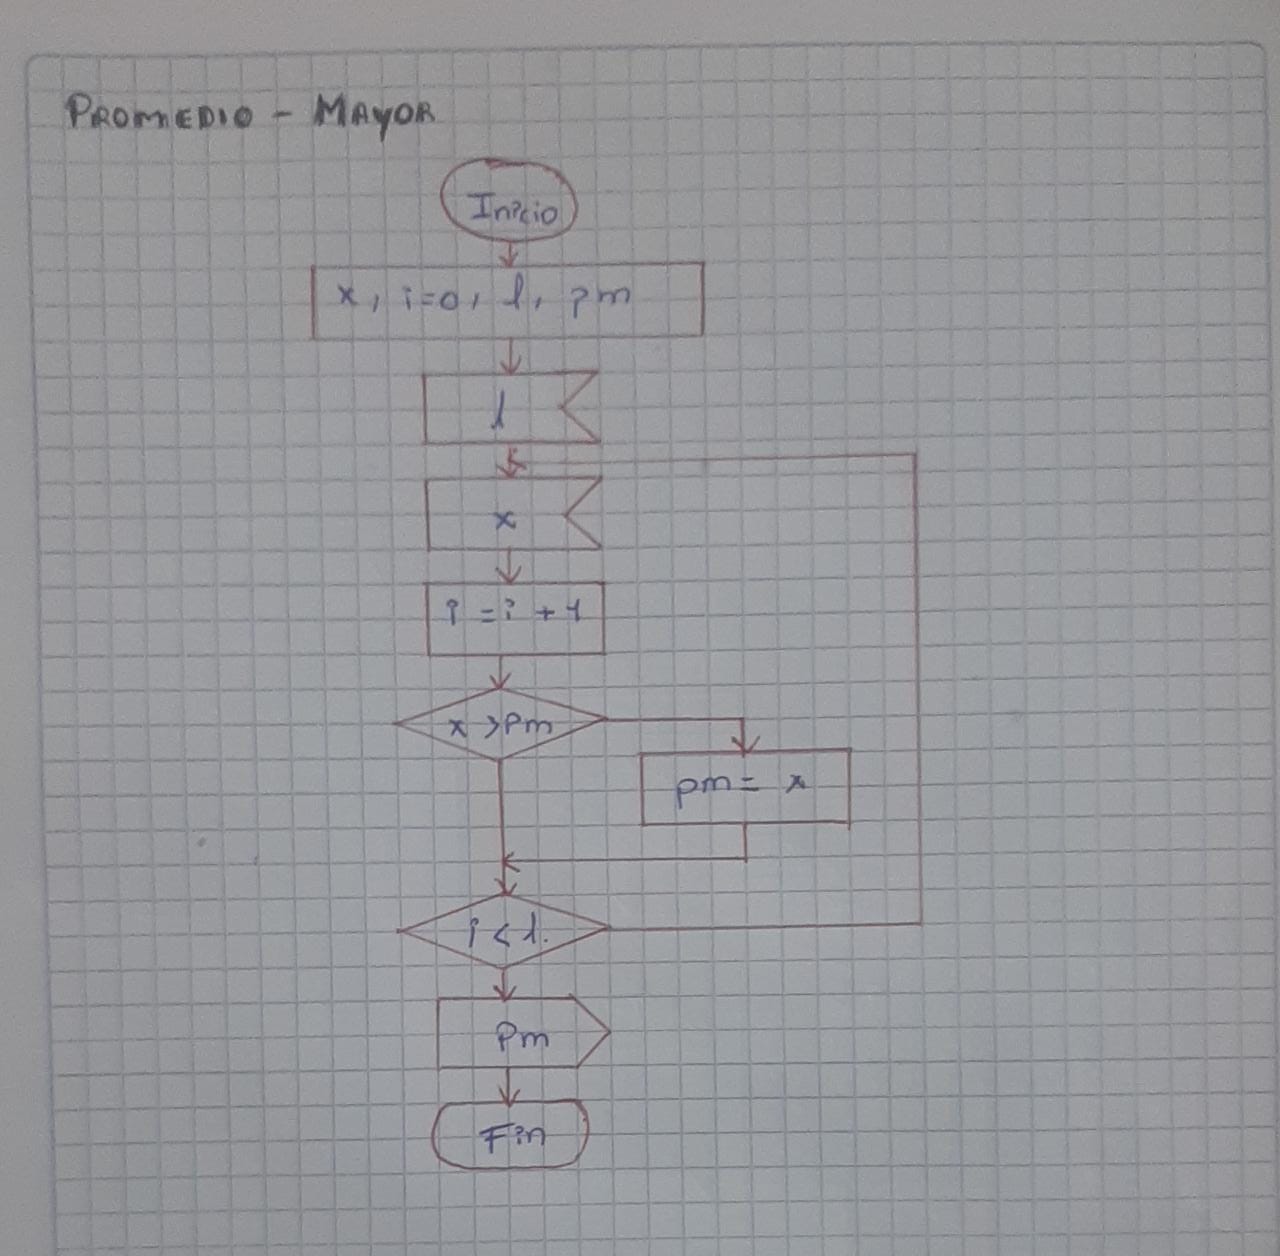 PROMEDIO - MAYOR
Inicio
x, i=0, l, pm
l
x
i = i + 1
x > pm
pm = x
i < l.
Pm
Fin